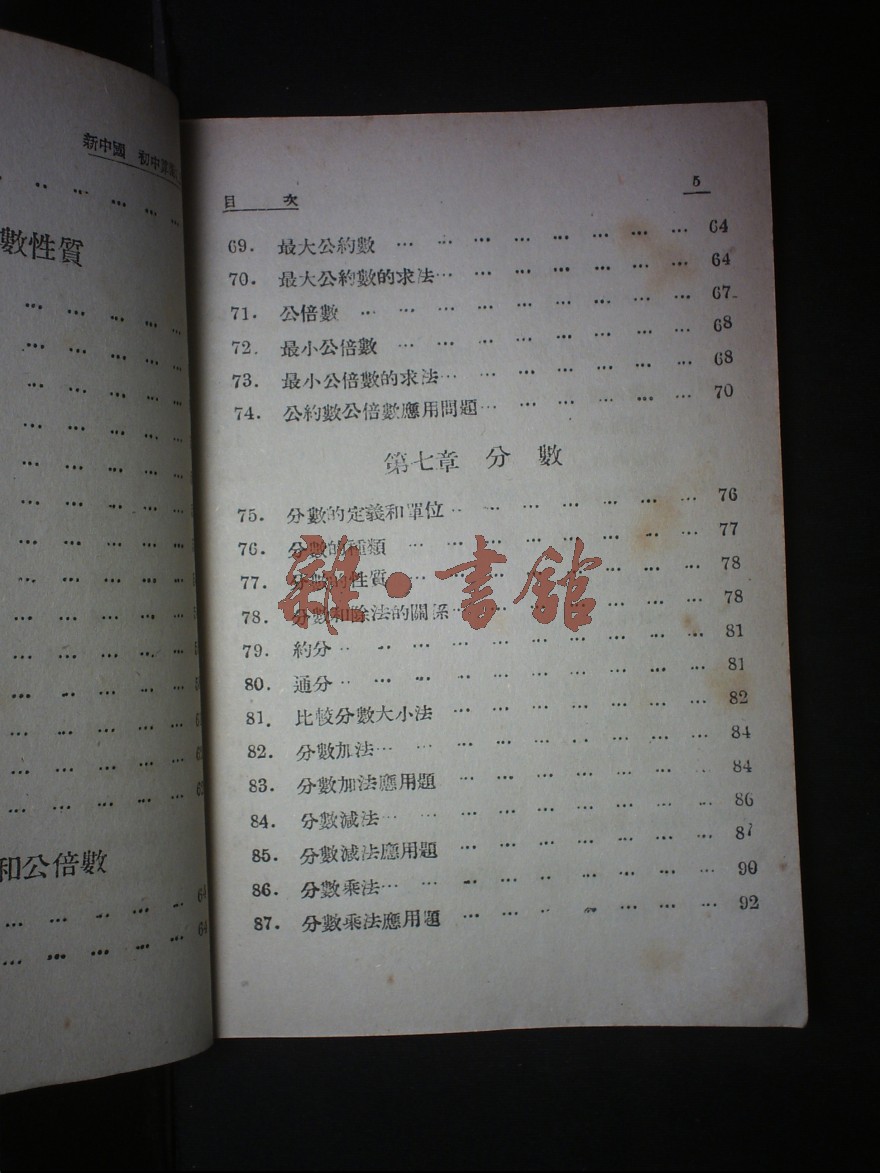 新中國 初中
數性質
和公倍數
64
64
目 次 5
69. 最大公約數 … … … … … … … … … 64
70. 最大公約數的求法… … … … … … … … 64
71. 公倍數 … … … … … … … … … … 67
72. 最小公倍數 … … … … … … … … … 68
73. 最小公倍數的求法… … … … … … … … 68
74. 公約數公倍數應用問題… … … … … … … 70
第七章 分 數
75. 分數的定義和單位… … … … … … … … 76
76. 分數的種類 … … … … … … … … … 77
77. 分數的性質 … … … … … … … … … 78
78. 分數和除法的關係… … … … … … … … 78
79. 約分… … … … … … … … … … … 81
80. 通分… … … … … … … … … … … 81
81. 比較分數大小法 … … … … … … … … 82
82. 分數加法… … … … … … … … … … 84
83. 分數加法應用題 … … … … … … … … 84
84. 分數減法… … … … … … … … … … 86
85. 分數減法應用題 … … … … … … … … 87
86. 分數乘法… … … … … … … … … … 90
87. 分數乘法應用題 … … … … … … … … 92
雜·書館